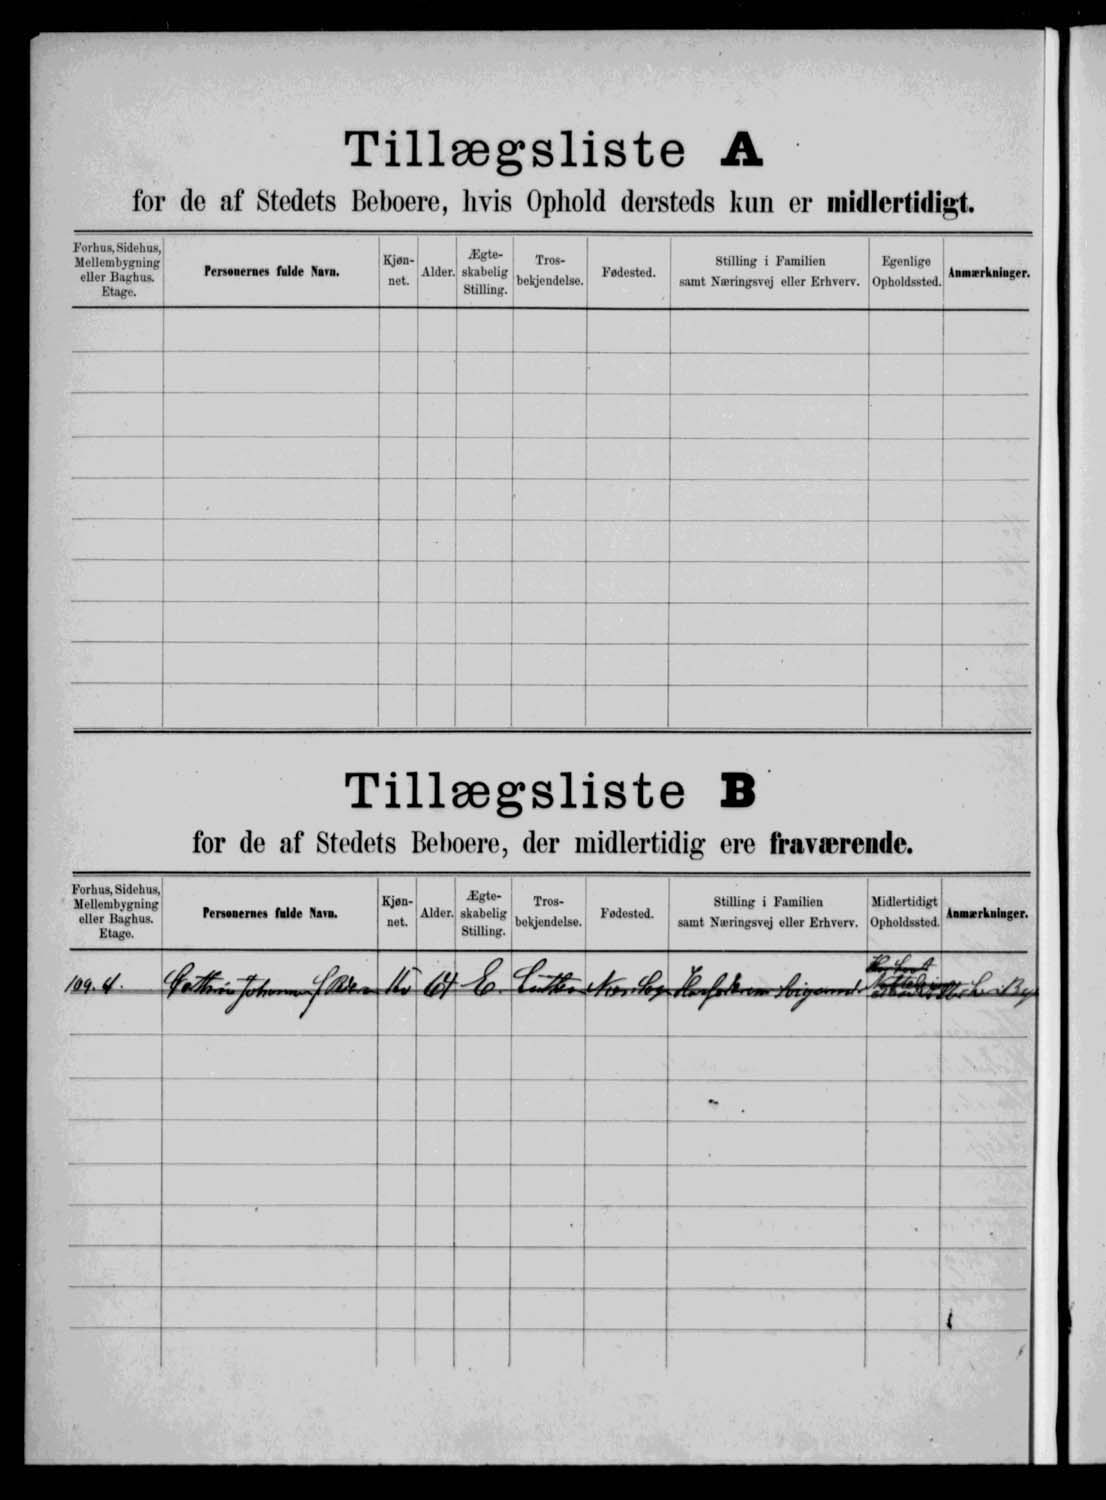 Tillægsliste A
for de af Stedets Beboere, hvis Ophold dersteds kun er midlertidigt.
Forhus, Sidehus, Mellembygning eller Baghus. Etage.
Personernes fulde Navn.
Kjøn-
net.
Alder.
Ægte-
skabelig
Stilling.
Tros-
bekjendelse.
Fødested.
Stilling i Familien
samt Næringsvej eller Erhverv.
Egenlige
Opholdssted.
Anmærkninger.
Tillægsliste B
for de af Stedets Beboere, der midlertidig ere fraværende.
Forhus, Sidehus,
Mellembygning
eller Baghus.
Etage.
Personernes fulde Navn.
Kjøn-
net.
Alder.
Ægte-
skabelig
Stilling.
Tros-
bekjendelse.
Fødested.
Stilling i Familien
samt Næringsvej eller Erhverv.
Midlertidigt
Opholdssted.
Anmærkninger.
109. 64 E.